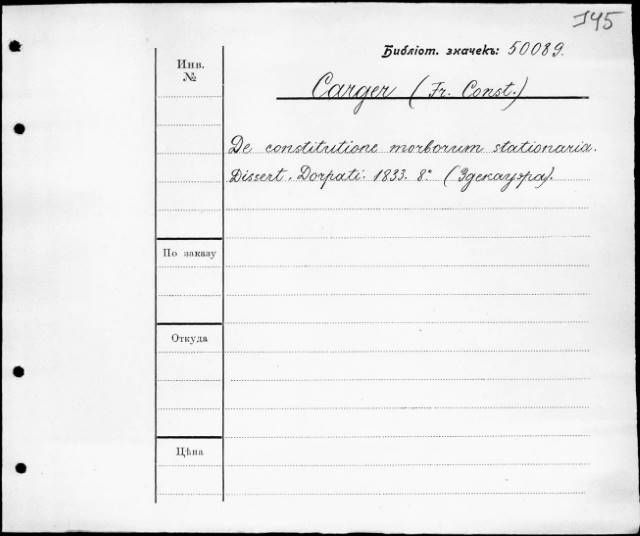 I45
Библіот. значекъ: 50089.
Инв.
№
Carger (Fr. Const.)
De constitutione morborum stationaria.
Dissert. Dorpati: 1833. 8º (Эдекауэра).
По заказу
Откуда
Цѣна